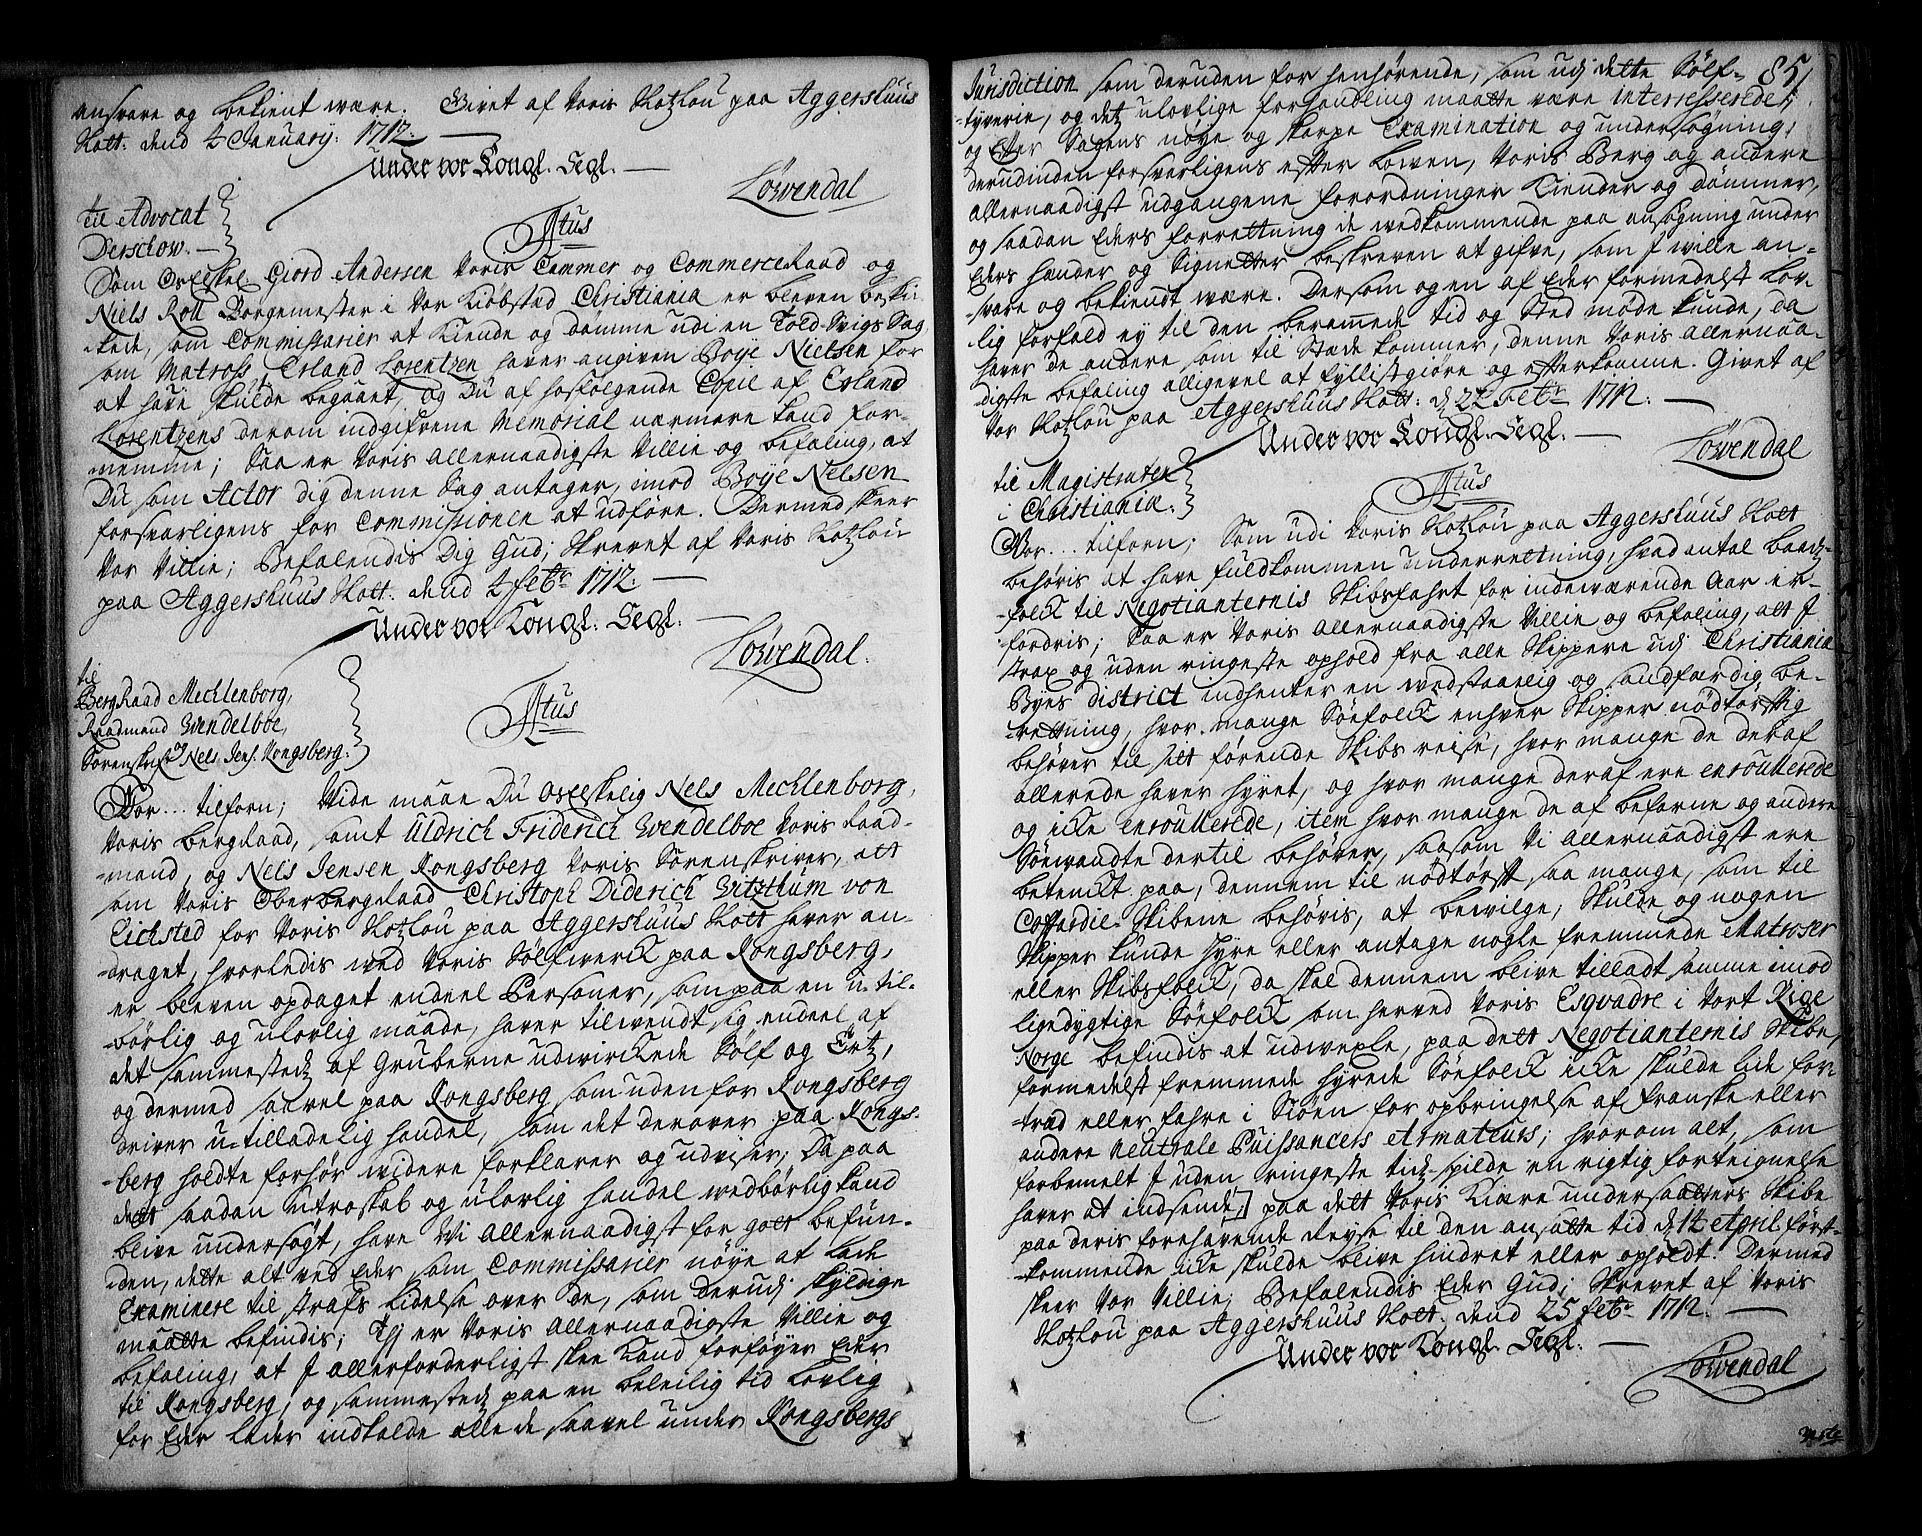 ansvare og bekient være. Givet af Voris Slotzlou paa Aggershuus
Slott. dend 4 January: 1712.
Under vor Kongl. Segl.
Løwendal
til Advocat
Derschow.
Ftus
Som Velædel Giord Andersen Voris Cammer og CommerceRaad og
Niels Roll Borgemester i Vor Kiøbsted Christiania er bleven beski-
-kede, som Commissarier at Kiende og dømme udi en Told-Svigs Sag,
som Matross Erland Lorentzen haver angiven Boye Nielsen for
at have skulde begaaet, og Du af hosfølgende Copie af Erland
Lorentzens derom indgifvene Memorial nærmere kand for-
nemme; Saa er Voris allernaadigste Villie og befaling, at
Du som Actor dig denne Sag antager, imod Boye Nelsen
forsvarligens for Commissionen at udføre. Dermed skeer
Vor Villie; Befalendis Dig Gud; Skrevet af Voris Slotzlou
paa Aggershuus Slott. dend 4 febr. 1712.
Under vor Kongl. Segl.
Løwendal.
til
BergRaad Mechlenborg,
Raadmand Wendelboe,
Sorenskrifr Nels Jens. Kongsberg.
Ftus
Vor... tilforn; Vide maae Du Velædelig Nels Mechlenborg,
Voris bergRaad, samt Uldrich Friderich Wendelboe Voris Raad-
-mand, og Nels Jensen Kongsberg Voris Sorenskriver, att
som Voris OberbergRaad Christoph Diderich Vitzthum von
Eichsted for Voris Slotzlou paa Aggershuus Slott haver an-
-draget, hvorledis ved Voris Sølfwerck paa Kongsberg,
er bleven opdaget endeel Personer, som paa en u-til-
-børlig og ulovlig maade, haver tilwendt sig endeel af
det sammestedz af Gruberne udwirckede Sølf og Ertz,
og dermed saavel paa Kongsberg som uden for Kongsberg
driver u-tilladelig handel, som det derover paa Kongs-
-berg holdte forhør widere forklarer og udviser; Da paa
dett saadan Utroskab og ulovlig handel wedbørlig kand
blive undersøgt, have Vi allernaadigst for gott befun-
-den, dette alt ved Eder som Commissarier nøye at lade
Examinere til strafs lidelse over de, som derudj skyldige
maatte befindis; Thj er Voris allernaadigste Villie og
befaling, at I allerforderligst skee kand forføyer Eder
til Kongsberg, og sammestedz paa en beleilig tid lovlig
for Eder lader indkalde alle de saavel under Kongsbergs
85
Jurisdiction som deruden for henhørende, som udj dette Sølf-
-tyverie, og det ulovlige forhandling maatte være interresserede,
og Efter Sagens nøye og skarpe Examination og undersøgning,
derudinden forsvarligens efter Lowen, Voris Berg og andere
allernaadigst udgangene forordninger Kiender og Dømmer,
og saadan Eders forrettning de wedkommende paa ansøgning under
Eders hænder og Signetter beskreven at gifve, som I wille an-
-svare og bekiendt være. Dersom og en af Eder formedelst lov-
-lig forfald ey til den beramede tid og Sted møde kunde, da
haver de andere som til Stæde kommer, denne Voris allernaa-
-digste befaling alligevel at fyllistgiøre og efterkomme. Givet af
Vor Slotzlou paa Aggershuus Slott: d. 22 Febr. 1712.
Under vor Kongl. Segl.
Løwendal
til Magistraten
i Christiania.
Ftus
Vor... tilforn; Som udi Voris Slotzlou paa Aggershuus Slott
behøris at have fuldkommen underrettning, hvad antal baadz-
-folck til Negotianternis Skibsfahrt for indeværende Aar er-
fordris; Saa er Voris allernaadigste Villie og befaling, att I
strax og uden ringeste ophold fra alle Skippere udj Christiania
Byes district indhenter en wedstaaelig og sandfærdig be-
-rettning, hvor mange Søefolck enhver Skipper nødtørftig
behøver til sitt førende Skibs reise, hvor mange de deraf
allerede haver hyret, og hvor mange deraf ere enroullerede
og icke enroullerede, item hvor mange de af befarne og andere
Søevandte dertil behøver, saasom Vi allernaadigst ere
betenckt paa, dennem til nødtørft saa mange, som til
Coffardie-Skibene behøris, at bewilge; Skulde og nogen
Skipper kunde hyre eller antage nogle fremmede Matroser
eller Skibsfolck, da skal dennem blive tilladt samme imod
ligedygtige Søefolck som herved Voris Esqvadre i Vort Rige
Norge befindis at udwexle, paa dett Negotianternis Skibe,
formedelst fremmede hyrede Søefolck icke skulde lide for-
træd eller fahre i Søen for opbringelse af franske eller
andere neutrale Puissancers Armateurs; hvorom alt, som
forbemelt I uden ringeste tidz-spilde en rigtig forteignelse
haver at indsende, paa dett Voris Kiære undersaatters Skibe
paa deris forehavende Reyse til den ansatte tid d. 12 April først-
-kommende icke skulde blive hindret eller opholdt. Dermed
skeer Vor Villie; Befalendis Eder Gud; Skrevet af Voris
Slotzlou paa Aggershuus Slott. dend 25 febr. 1712.
Under vor Kongl. Segl.
Løwendal